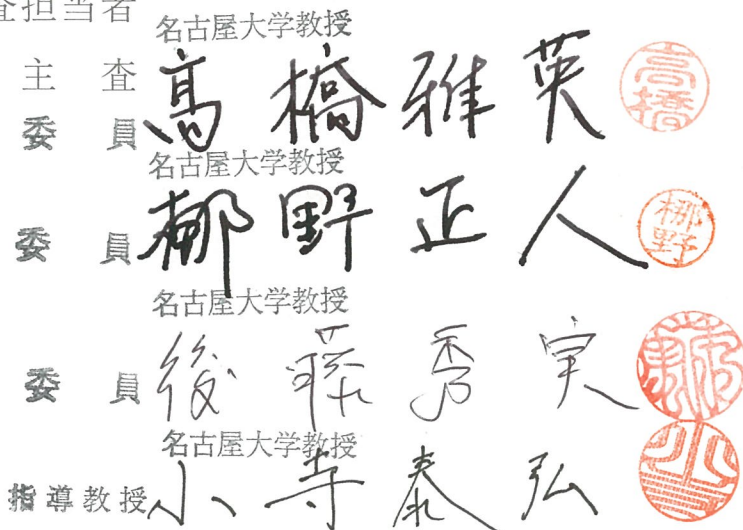 査担当者
名古屋大学教授
主査 髙橋雅英 髙橋
委員
名古屋大学教授
委員 梛野正人 梛野
名古屋大学教授
委員 後藤秀実
名古屋大学教授
指導教授 小寺泰弘